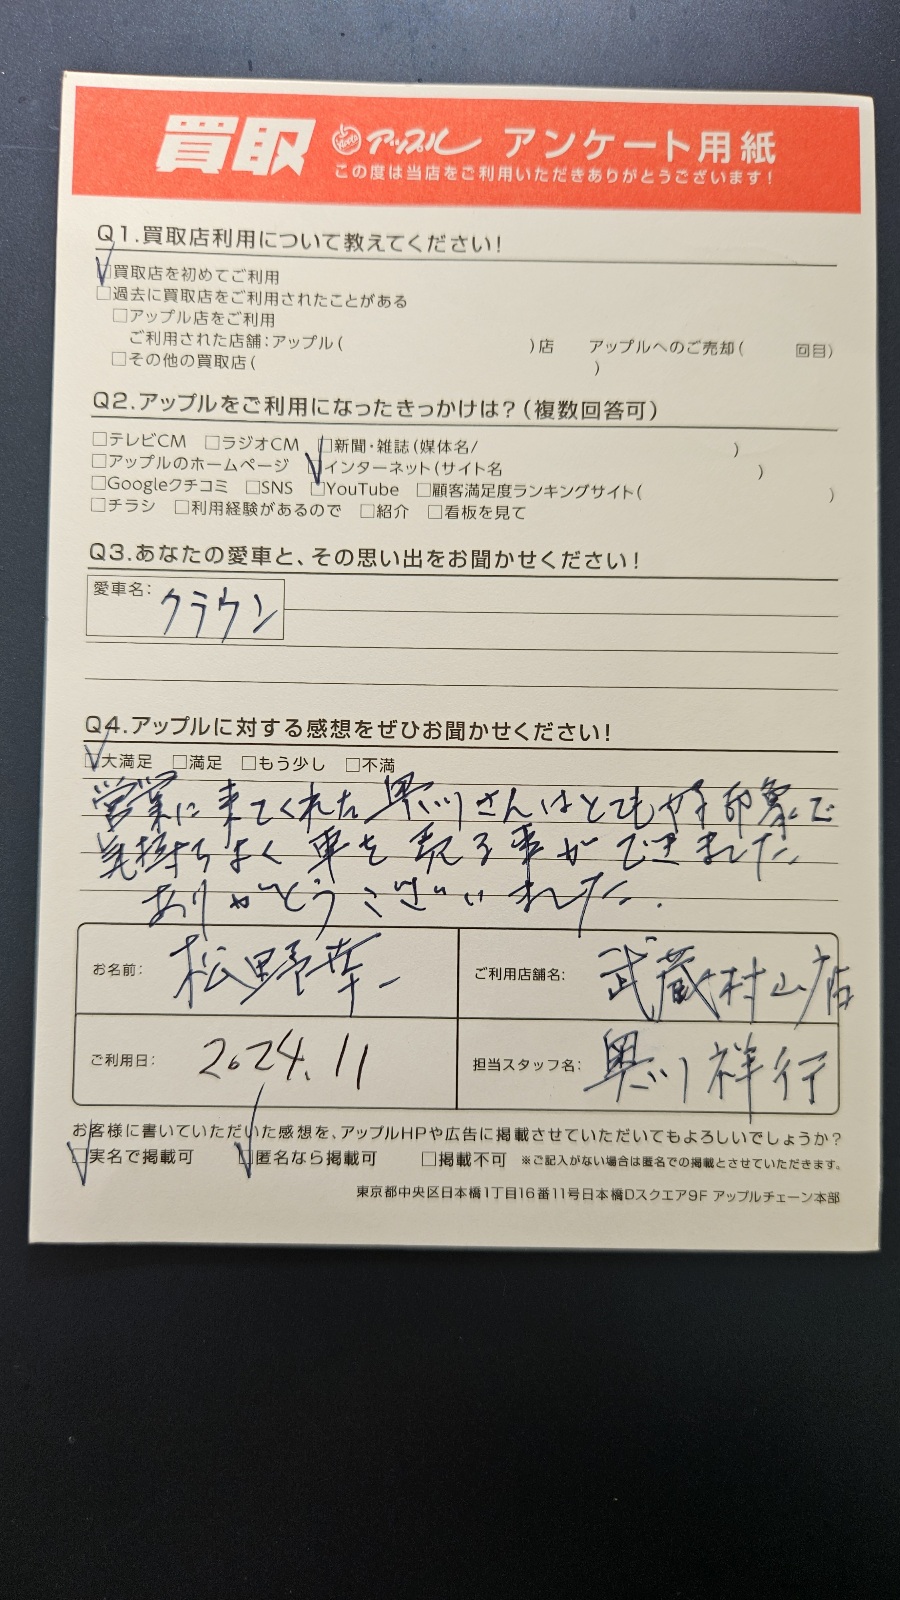 買取 アップル アンケート用紙
この度は当店をご利用いただきありがとうございます！
Q1.買取店利用について教えてください！
☑買取店を初めてご利用
□過去に買取店をご利用されたことがある
□アップル店をご利用
ご利用された店舗：アップル（　　　）店　アップルへのご売却（　　　回目）
□その他の買取店（　　　）
Q2.アップルをご利用になったきっかけは？（複数回答可）
□テレビCM　□ラジオCM　□新聞・雑誌（媒体名/　　　）
□アップルのホームページ　☑インターネット（サイト名　　　）
□Googleクチコミ　□SNS　□YouTube　□顧客満足度ランキングサイト（　　　）
□チラシ　□利用経験があるので　□紹介　□看板を見て
Q3.あなたの愛車と、その思い出をお聞かせください！
愛車名：クラウン
Q4.アップルに対する感想をぜひお聞かせください！
☑大満足　□満足　□もう少し　□不満
営業に来てくれた奥川さんはとても 印象で
気持ちよく車を売る事ができました。
ありがとうございました.
お名前：松野幸一　ご利用店舗名：武蔵村山店
ご利用日：2024.11　担当スタッフ名：奥川祥行
お客様に書いていただいた感想を、アップルHPや広告に掲載させていただいてもよろしいでしょうか？
☑実名で掲載可　☑匿名なら掲載可　□掲載不可　※ご記入がない場合は匿名での掲載とさせていただきます。
東京都中央区日本橋1丁目16番11号日本橋Dスクエア9F アップルチェーン本部